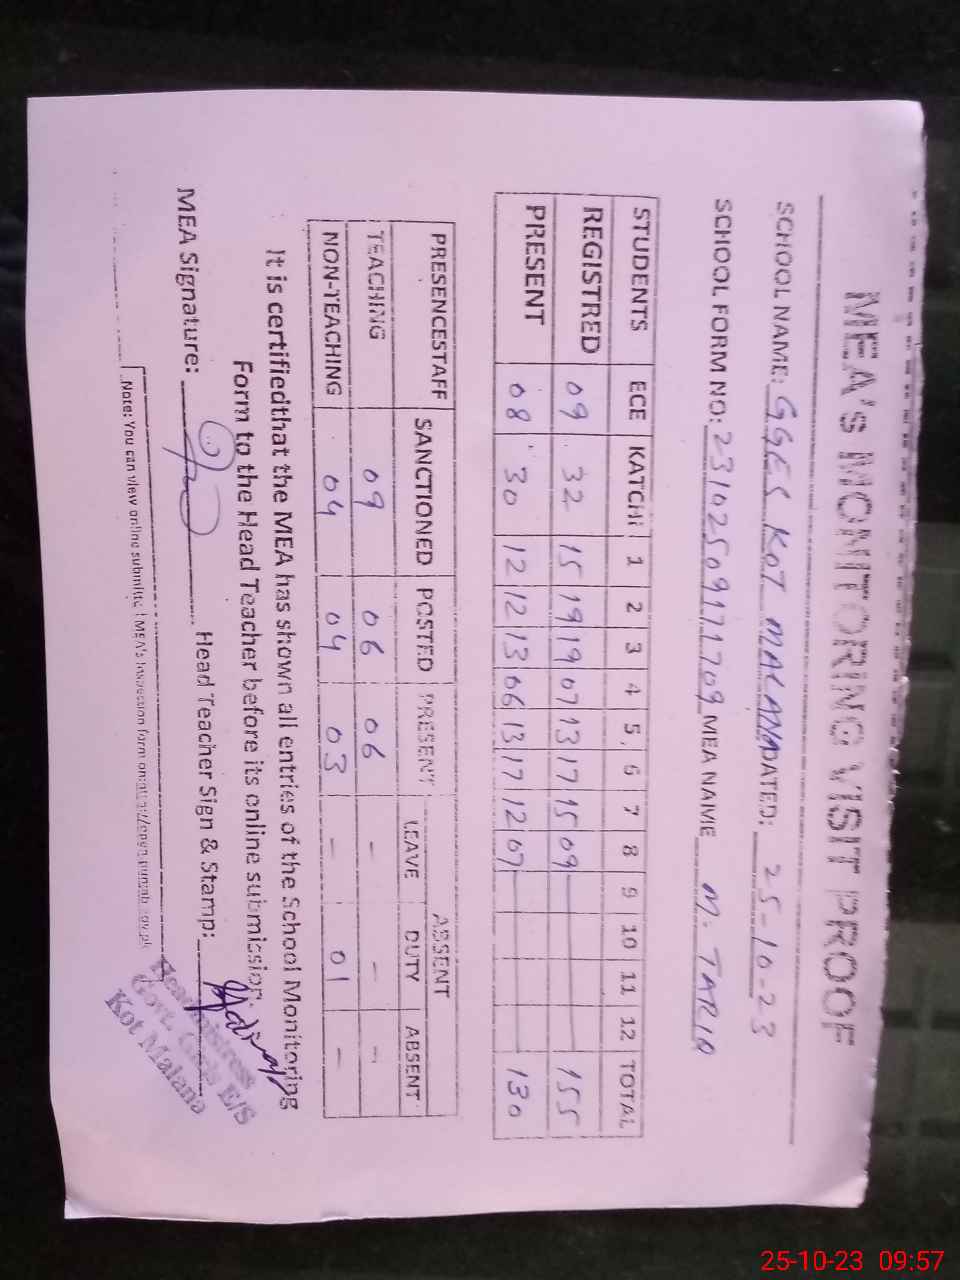 MEA'S MONITORING VISIT PROOF
SCHOOL NAME: GGES KOT MALANA DATED: 25-10-23
SCHOOL FORM NO: 23102509171709 MEA NAME M. TARIQ
STUDENTS ECE KATCHI 1 2 3 4 5 6 7 8 9 10 11 12 TOTAL
REGISTRED 09 32 15 19 19 07 13 17 15 09 155
PRESENT 08 30 12 12 13 06 13 17 12 07 130
PRESENCESTAFF SANCTIONED POSTED PRESENT ABSENT
LEAVE DUTY ABSENT
TEACHING 09 06 06 - - -
NON-TEACHING 04 04 03 - 01 -
It is certifiedthat the MEA has shown all entries of the School Monitoring
Form to the Head Teacher before its online submission.
MEA Signature: Head Teacher Sign & Stamp:
Headmistress
Govt. Girls E/S
Kot Malana
Note: You can view online submitted MEA's Inspection form on
25-10-23 09:57